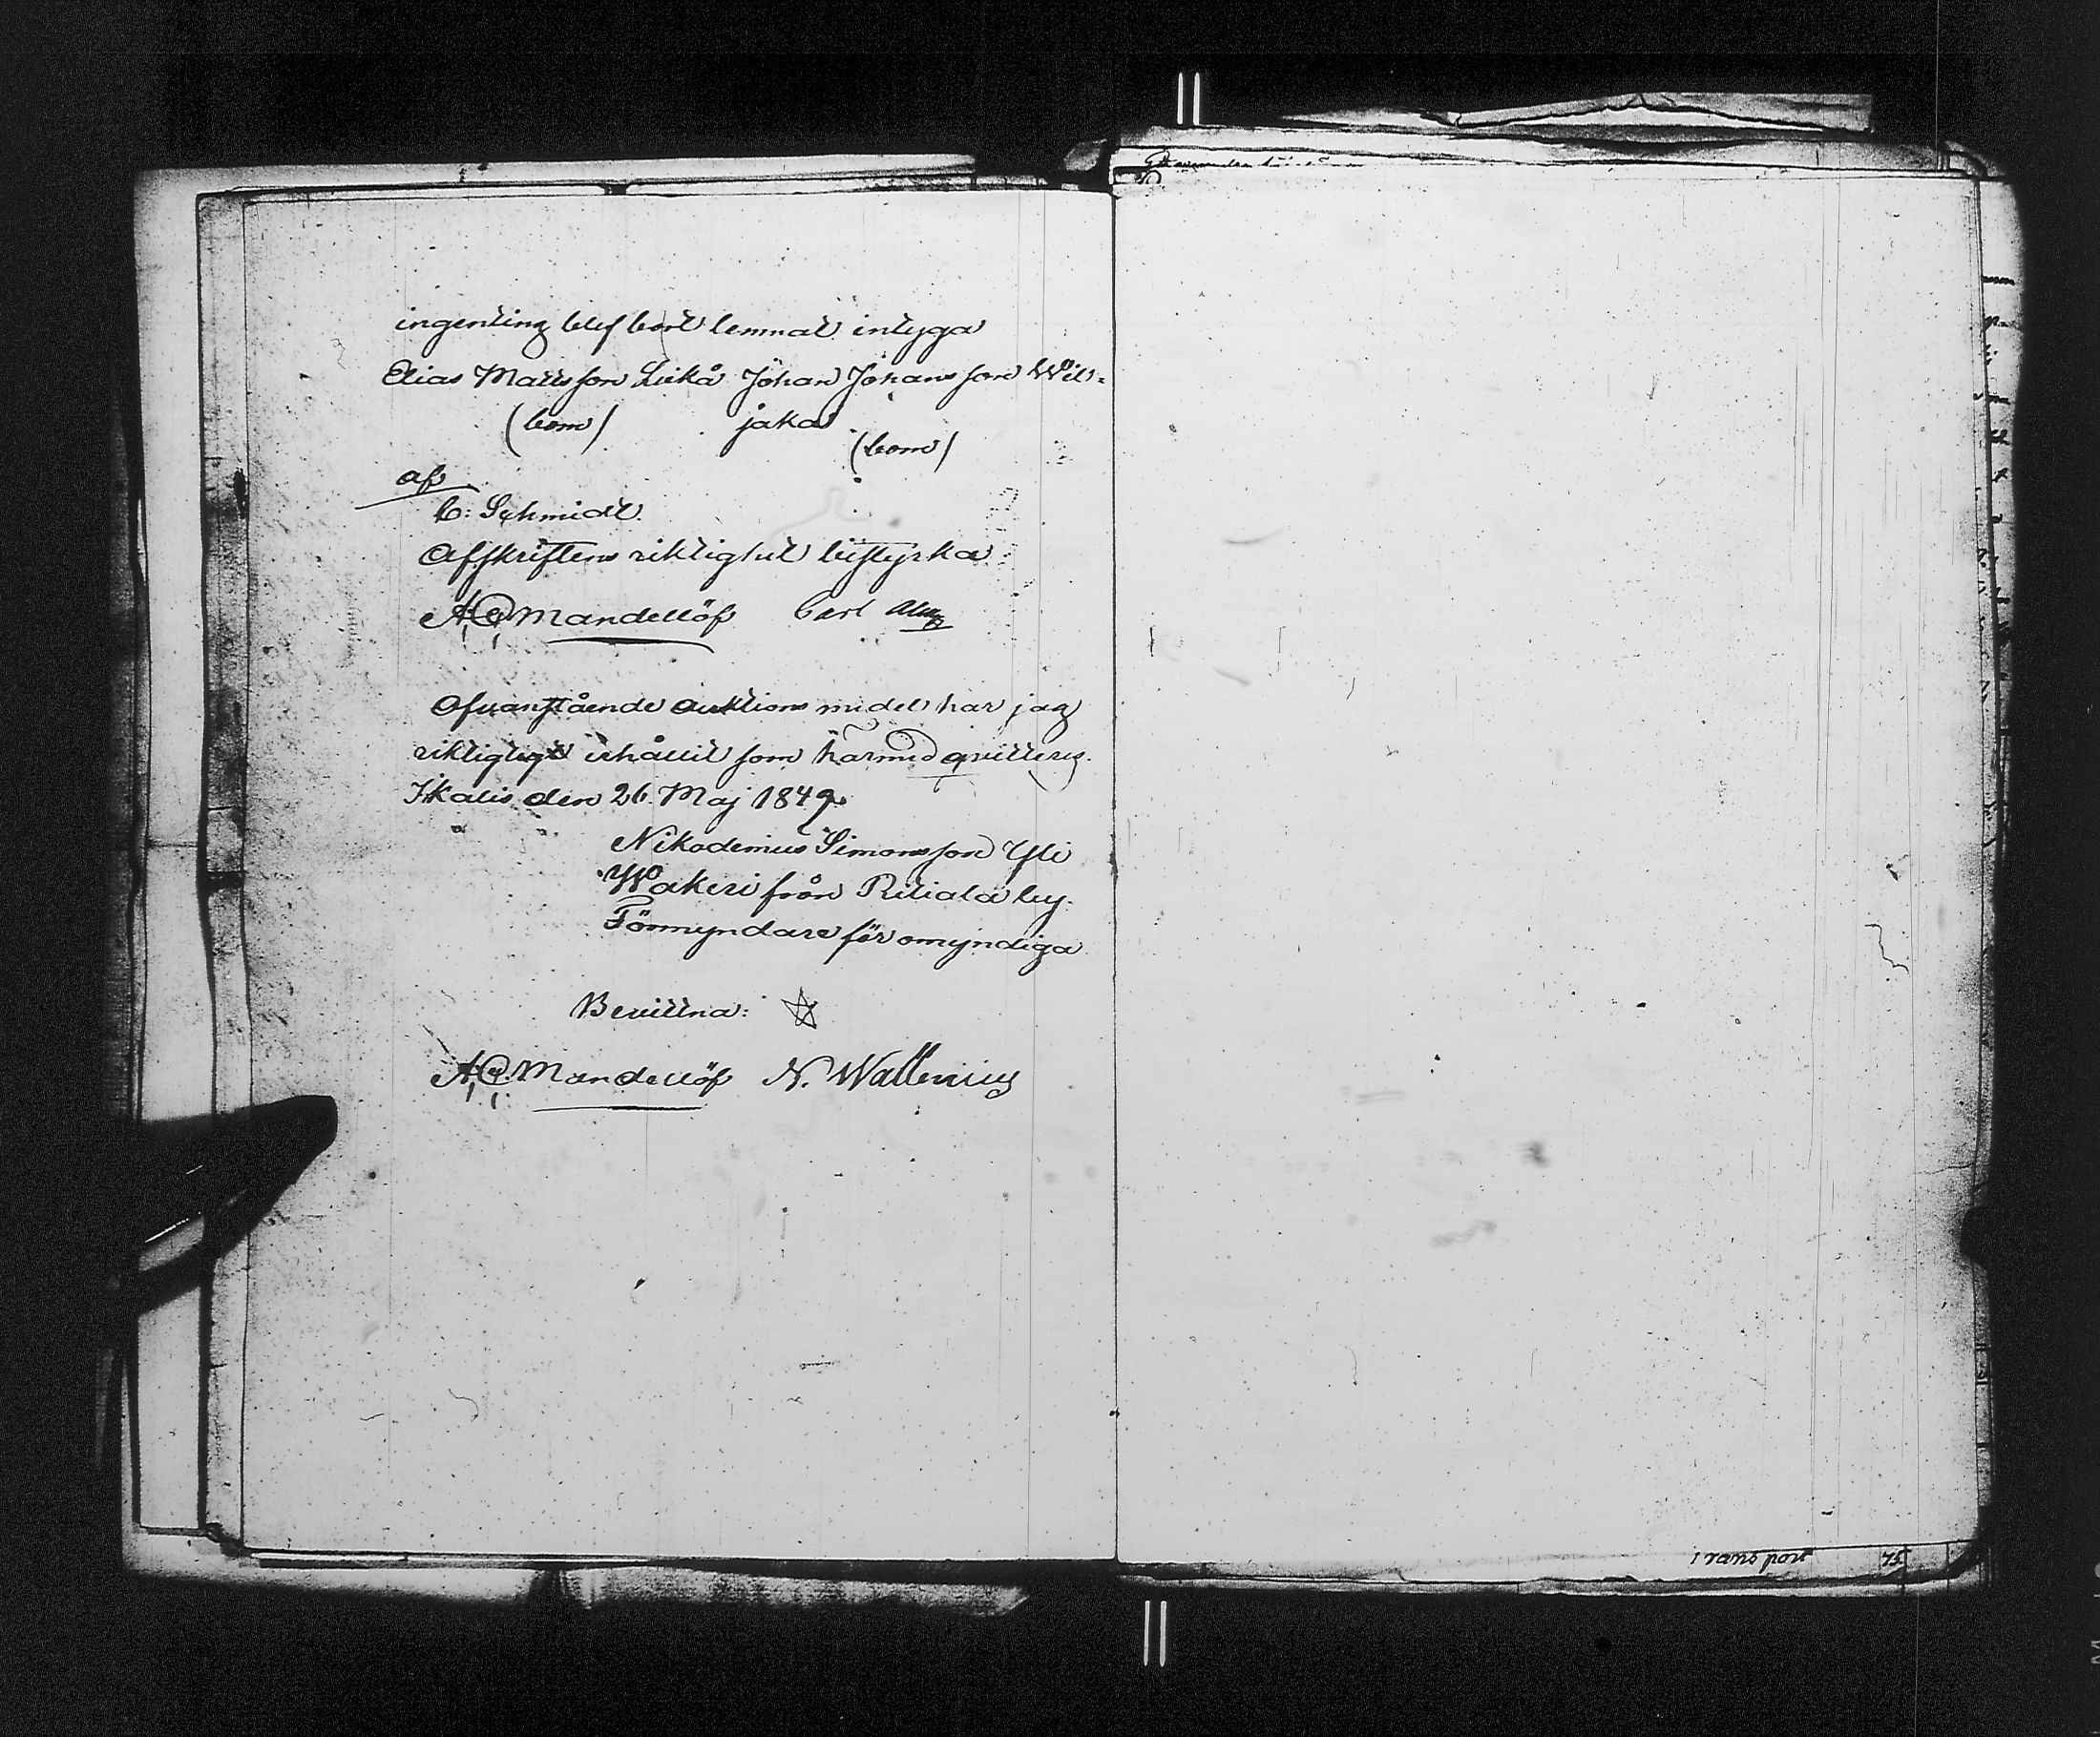 ingenting blef bort lemnat intyga
Elias Matts son Luckå Johan Johans son Wil-
(bom) jaka (bom)
af
C: Schmidt.
Afskriftens riktighet bestyrka
A. C. Mandellöf Carl Alm
Ofvanstående auktions medel har jag
riktigligt erhållit som härmed qvitteres.
Ikalis den 26 Maj 1849.
Nikodemus Simons son Yli
Wakeri från Riitiala by.
Förmyndare för omyndiga
Bevittna:
A. C. Mandellöf N. Wallenius
Transport 75